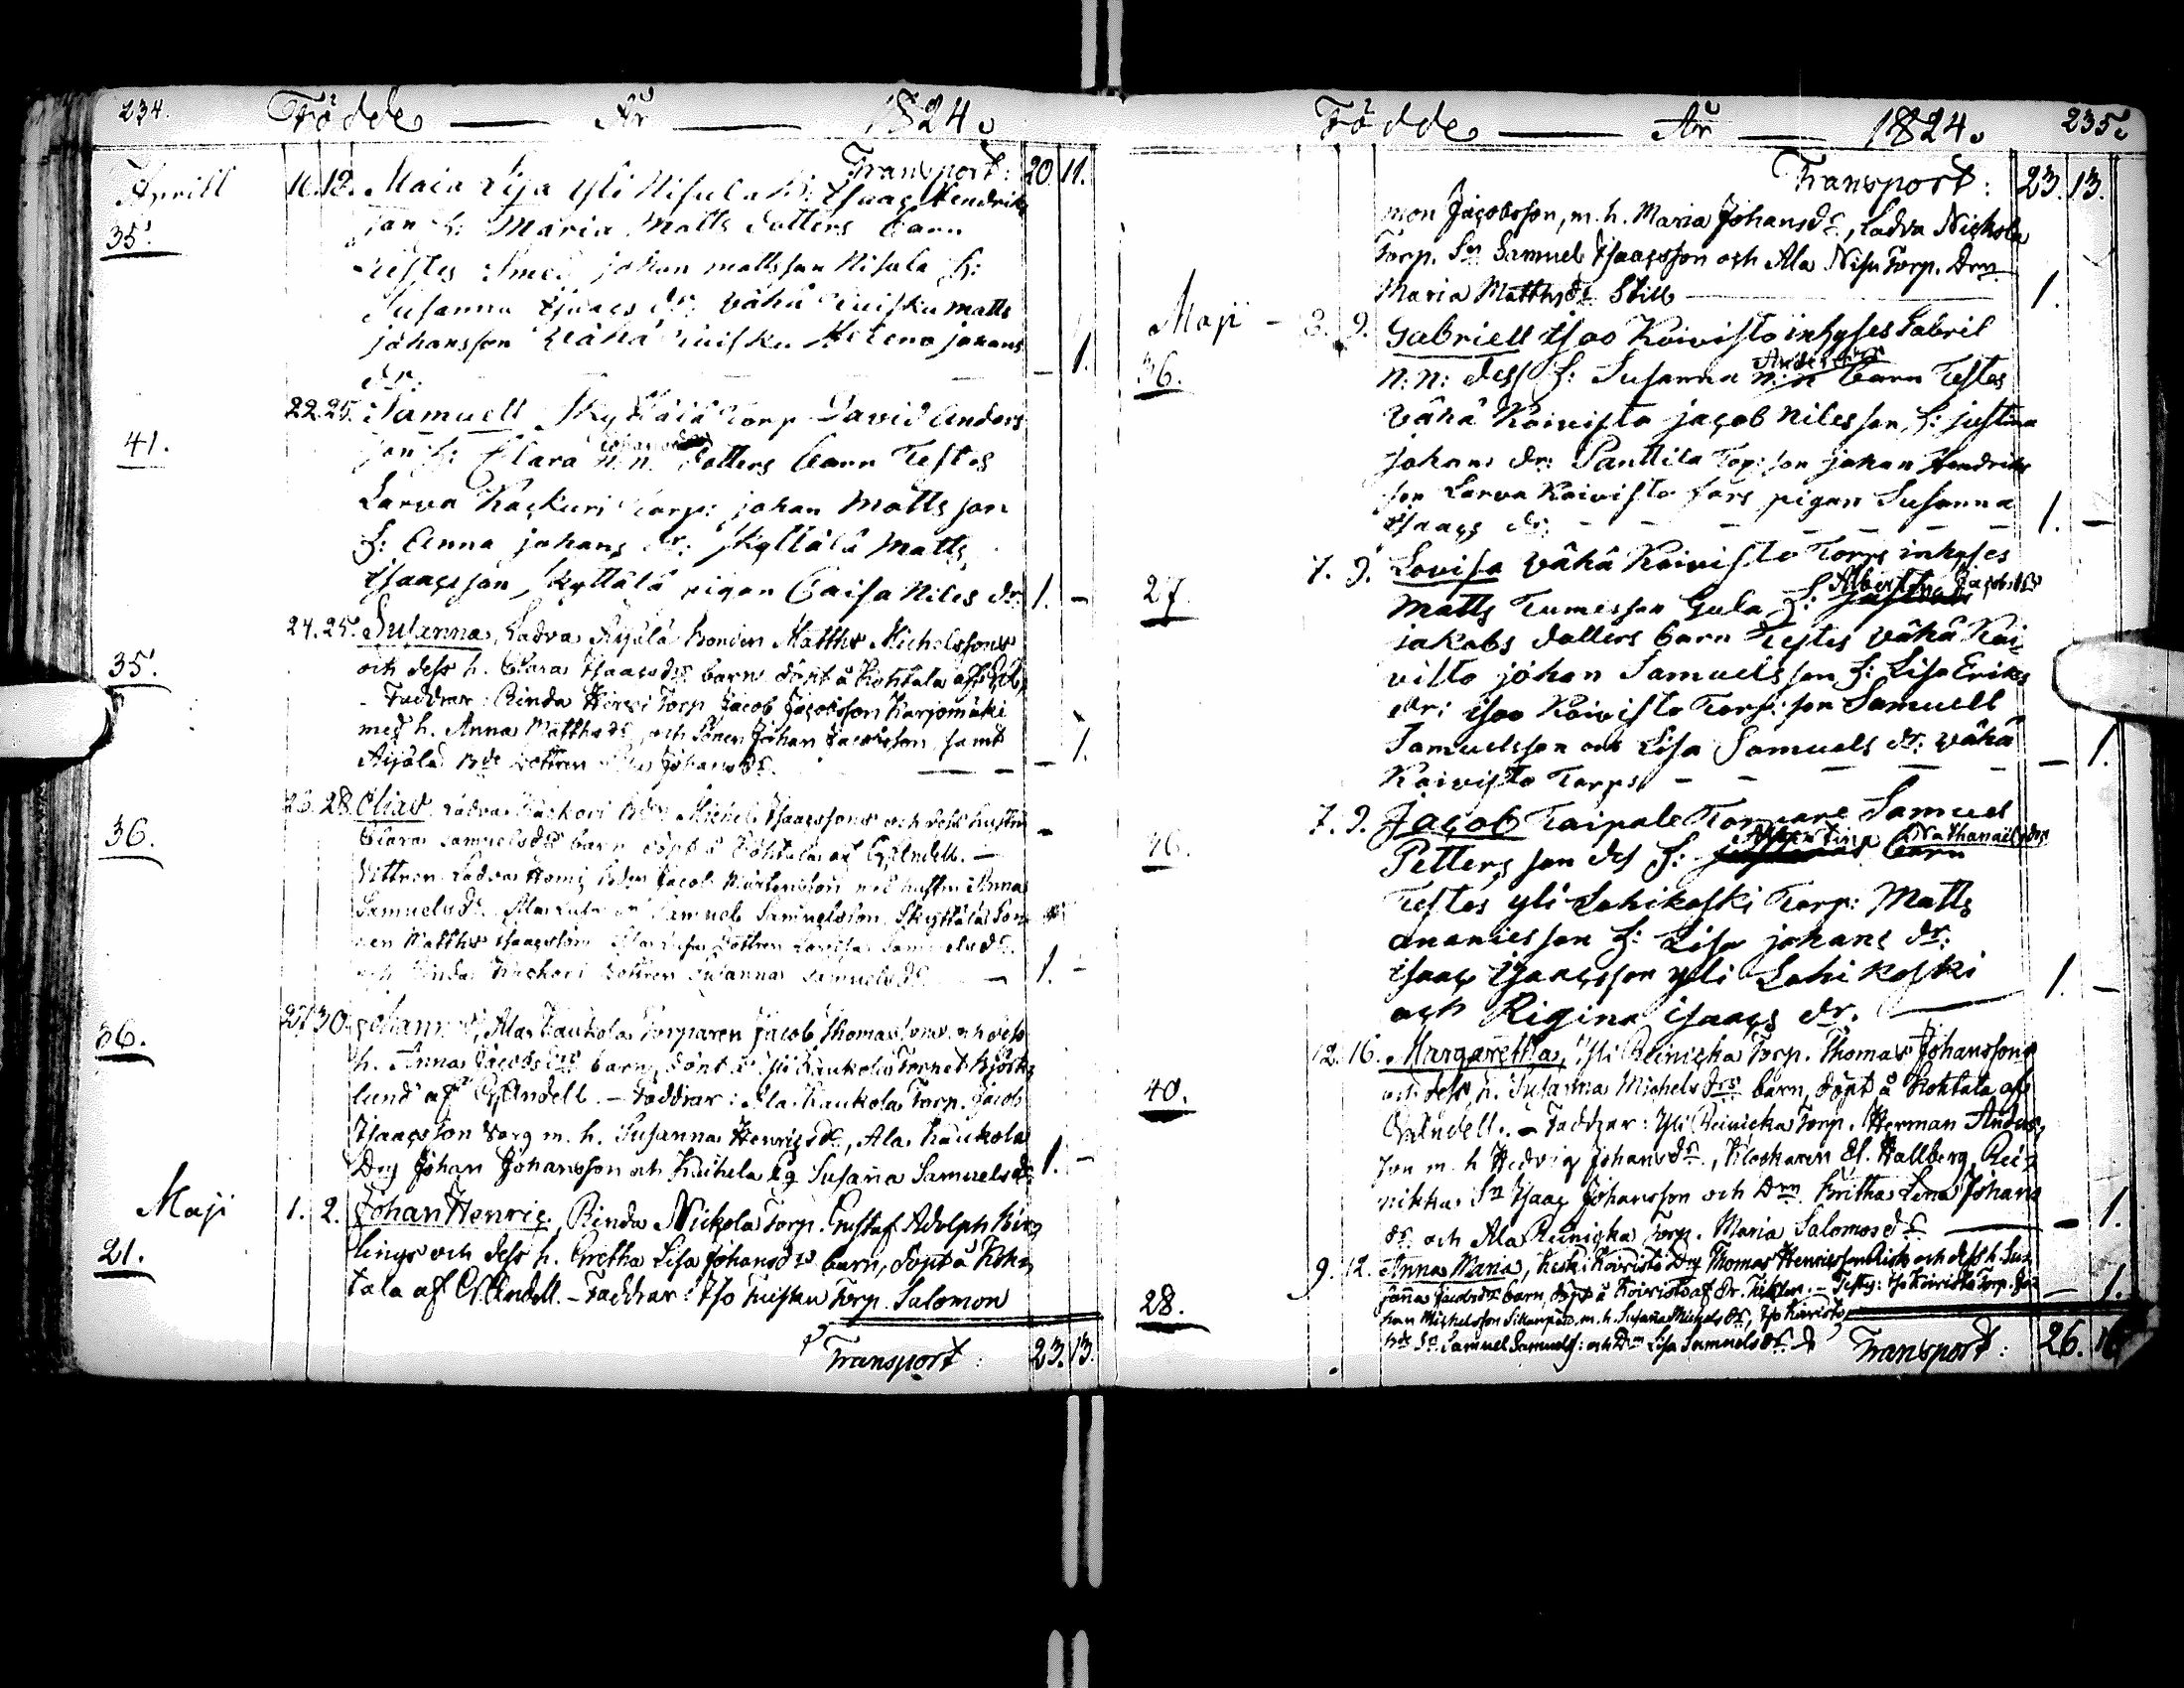 234. Födde — År — 1824.
Transport: 20. 11.
Aprill 16. 18. Maia Lisa Yli Nisula B: Isaac Hendriks
35. son h: Maria Matts dotters barn
Testes Smed johan mattsson Nisula h:
Susanna Isaacs dr: Vähä matts
johansson Vähä Helena johans
dr: — 1.
22. 25. Samuell Skyttälä Torp David Anders
41. son h: Clara n.n. dotters barn Testes
Larva Kackuri Torp: johan Matts son
h: Anna johans dr: Skyttälä Matts
Isaacsson, Skyttälä pigan Caisa Niles dr: 1. —
24. 25. Susanna, Ladva Äijälä bonden Matths Michelssons
35. och dess h. Clara Isaacsdrs barn döpt å Kohtala af
Faddrar: Rinda Hirvi Torp Jacob Jacobsson Karjomäki
med h. Anna Matthsdr, och Sonen Johan Jacobsson, samt
Äijälä Bde dottren Johansdr. — 1.
26. 28. Elias Ladva Kackori Bdn Michel Isaacssons och dess hustru
36. Clara Samuelsdrs barn döpt å Kohtala af Gr. Indell. —
Vittnen Ladva Homi bdn Jacob Mårtensson med hustru Anna
Samuelsdr. Ala Samuel Samuelsson, Skyttälä Son-
nen Matths Isaacsson Dottren Lovisa Samuelsdr.
och Rinda Kackori Dottren Susanna Samuelsdr — 1. —
27. 30. Johannes, Ala Kaukola Torparen Jacob Thomassons och dess
36. h. Anna Jacobsdrs barn, döpt å Yli Kaukola Tornet Björk-
lund af Gr. Indell. — Faddrar: Ala Kaukola Torp. Jacob
Isaacsson Varg m. h. Susanna Henricsdr, Ala Kaukola
Drg Johan Johansson och Kaihela Pg Susaña Samuelsdr 1. —
Maji 1. 2. Johan Henric, Rinda Nickola Torp. Gustaf Adolph Kis-
21. lings och dess h. Gretha Lisa Johansdrs barn, döpt å Koh-
tala af Gr. Indell. — Faddrar: Iso Torp. Salomon
Transport: 23. 13.
Födde — År — 1824. 235.
Transport: 23. 13.
mon Jacobsson, m. h. Maria Johansdr, Ladva Nickola
Torp. Sn Samuel Isaacsson och Ala Nisu Torp. Drn
Maria Matthsdr Still — 1.
Maji — 3. 9. Gabriell Isoo Koivisto inhyses Gabril
36. n: n: dess h: Susanna n: n barn Testes
Vähä Koivisto jacob Nilesson, h: justina
johans dr: Panttila Torp: son johan Hendriks
son Larva Koivisto fars pigan Susanna
Isaacs dr: — 1. —
7. 9. Lovisa Vähä Koivisto Torps inhyses
27. Matts Tumesson Gula h: Albertina Jacobsdrs
jakobs dotters barn Testes Vähä Koi-
visto johan Samuelsson h: Lisa Eriks
dr: isoo Koivisto Torp: son Samuell
Samuelsson och Lisa Samuels dr: Vähä
Koivisto Torps — 1.
7. 9. Jacob Taipale Torpare Samuel
Petters son des h: Albertina Nathanaelsdrs barn
Testes yli Lahikoski Torp: Matts
ananiesson h: Lisa johans dr:
Isaac Isaacsson ylli Lahi koski
och Rigina isaacs dr. — 1. —
12. 16. Margaretha, Yli Reinicka Torp. Thomas Johanssons
40. och dess h. Susanna Michelsdrs barn, döpt å Kohtala af
Gr. Indell. — Faddrar: Yli Reinicka Torp. Herman Anders-
son m. h Hedvig Johansdr., Klockaren El. Hallberg, Rei-
nikka Sn Isaac Johansson och Drn Britha Lena Johans
dr. och Ala Reinicka Torp. Maria Salomosdr — 1.
9. 12. Anna Maria, Keski Koivisto Drg Thomas Henricsson och dess h. Su-
28. saña Jacobsdrs barn, döpt å Koivisto af — Testes: Iso Koivisto Torp. Jo-
han Michelsson m. h. Susaña Michelsdr, Iso Koivisto — 1.
Bds Sn Samuel Samuelss: och Drn Lisa Samuelsdr.
Transport: 26. 16.